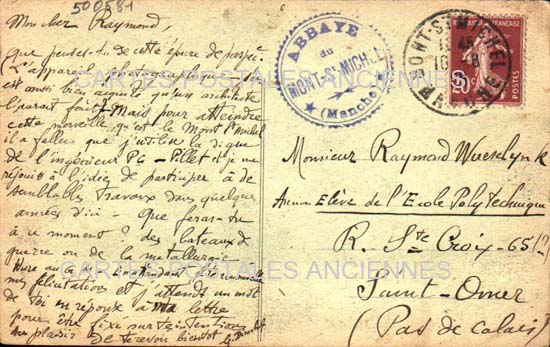 500581
Mon cher Raymond,
que penses-tu de cette épure de perspec.
L'appareil photographique
est aussi bien acquis qu'un architecte
l'aurait fait? Mais pour atteindre
cette merveille qu'est le Mont St Michel
il a fallu que j'utilise la digue
de l'ingénieur PC - Pillet et je me
réjouis à l'idée de participer à de
semblables travaux dans quelques
années d'ici - Que feras-tu
à ce moment? des bateaux de
guerre ou de la metallurgie
mes félicitations et j'attends un mot
de toi en réponse à ma lettre
pour être fixé sur tes intentions
au plaisir de te revoir bientôt
ABBAYE
du
MONT-St-MICHEL
(Manche)
MONT-ST-MICHEL
MANCHE
RÉPUBLIQUE FRANÇAISE
POSTES
20c
Monsieur Raymond
Ancien Elève de l'Ecole Polytechnique
R. Ste Croix - 65
Saint-Omer
(Pas de Calais)
CARTES POSTALES ANCIENNES
CARTES POSTALES ANCIENNES